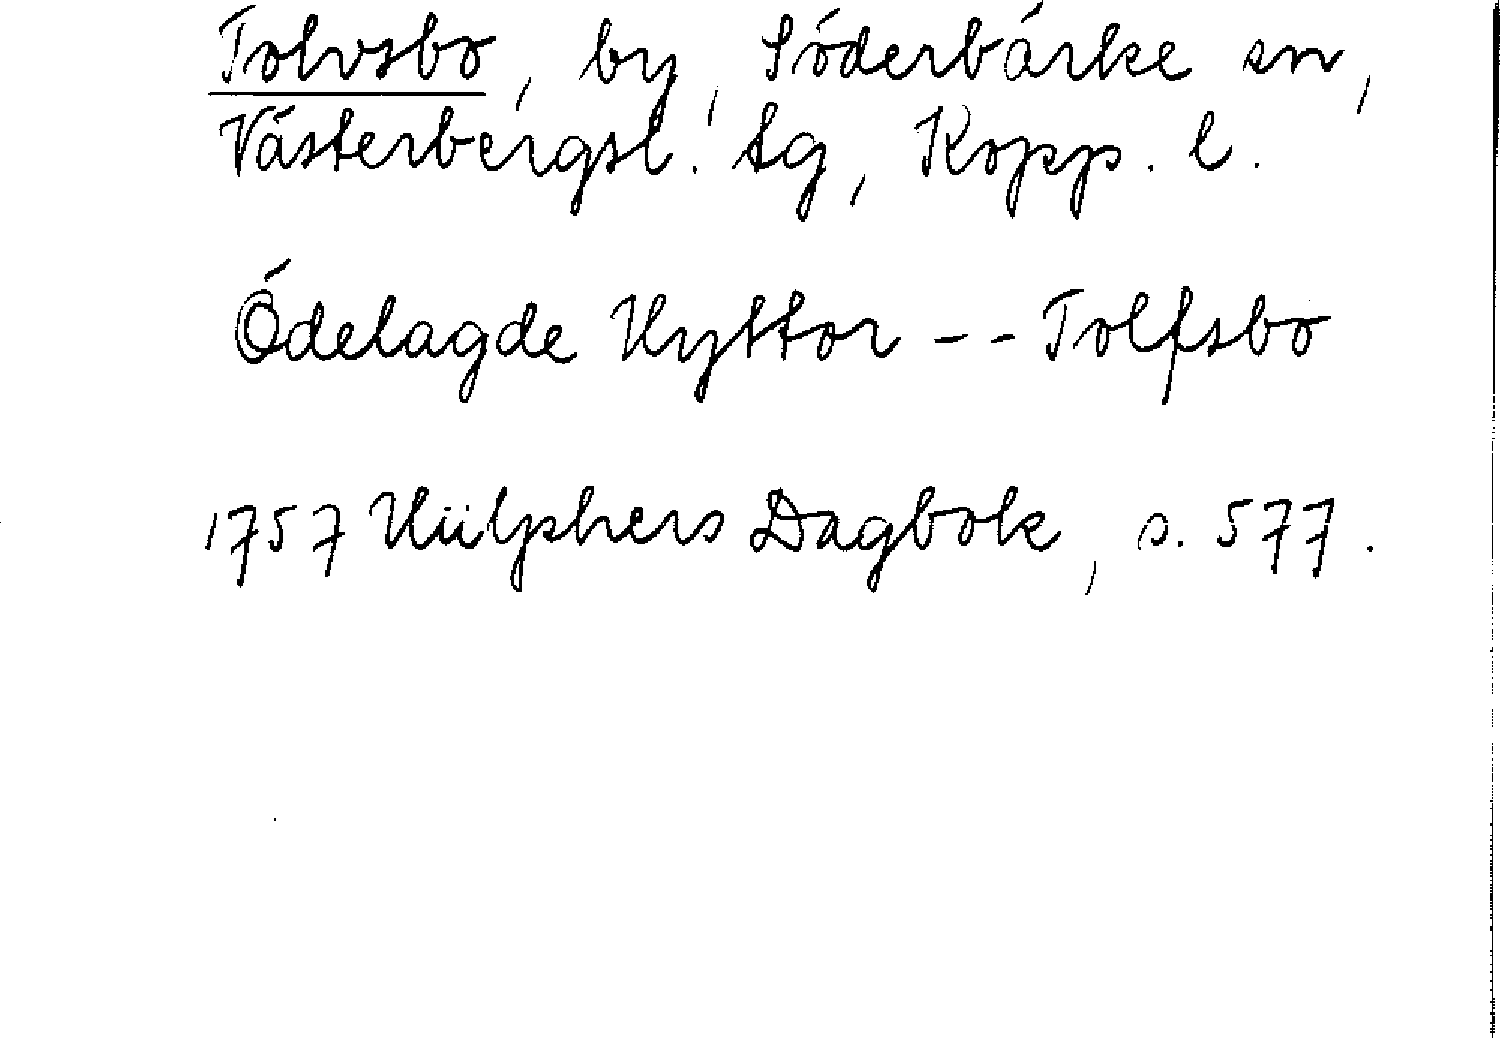 Tolvsbo, by, Söderbärke sn,
Västerbergsl. tg, Kopp. l.
Ödelagde Hyttor -- Tolfsbo
1757 Hülphers Dagbok, s. 577.